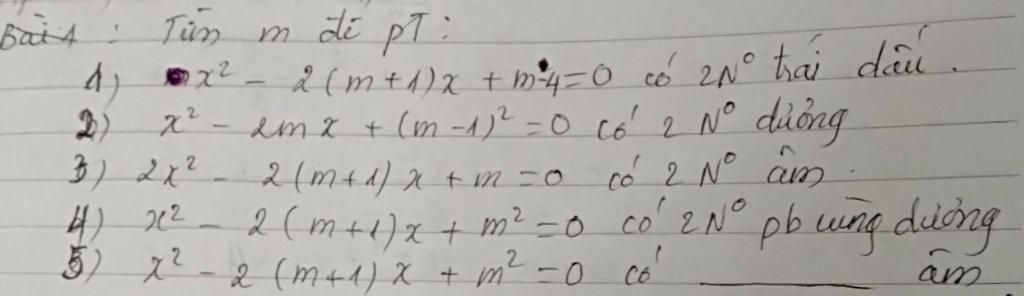 Bài 1 : Tìm m để pT :
1) x² - 2(m+1)x + m-4=0 có 2N⁰ trái dấu.
2) x² - 2mx + (m-1)² = 0 có 2 N⁰ dương
3) 2x² - 2(m+1)x + m = 0 có 2 N⁰ âm.
4) x² - 2(m+1)x + m² = 0 có 2N⁰ pb cùng dương
5) x² - 2(m+1)x + m² = 0 có ______ âm